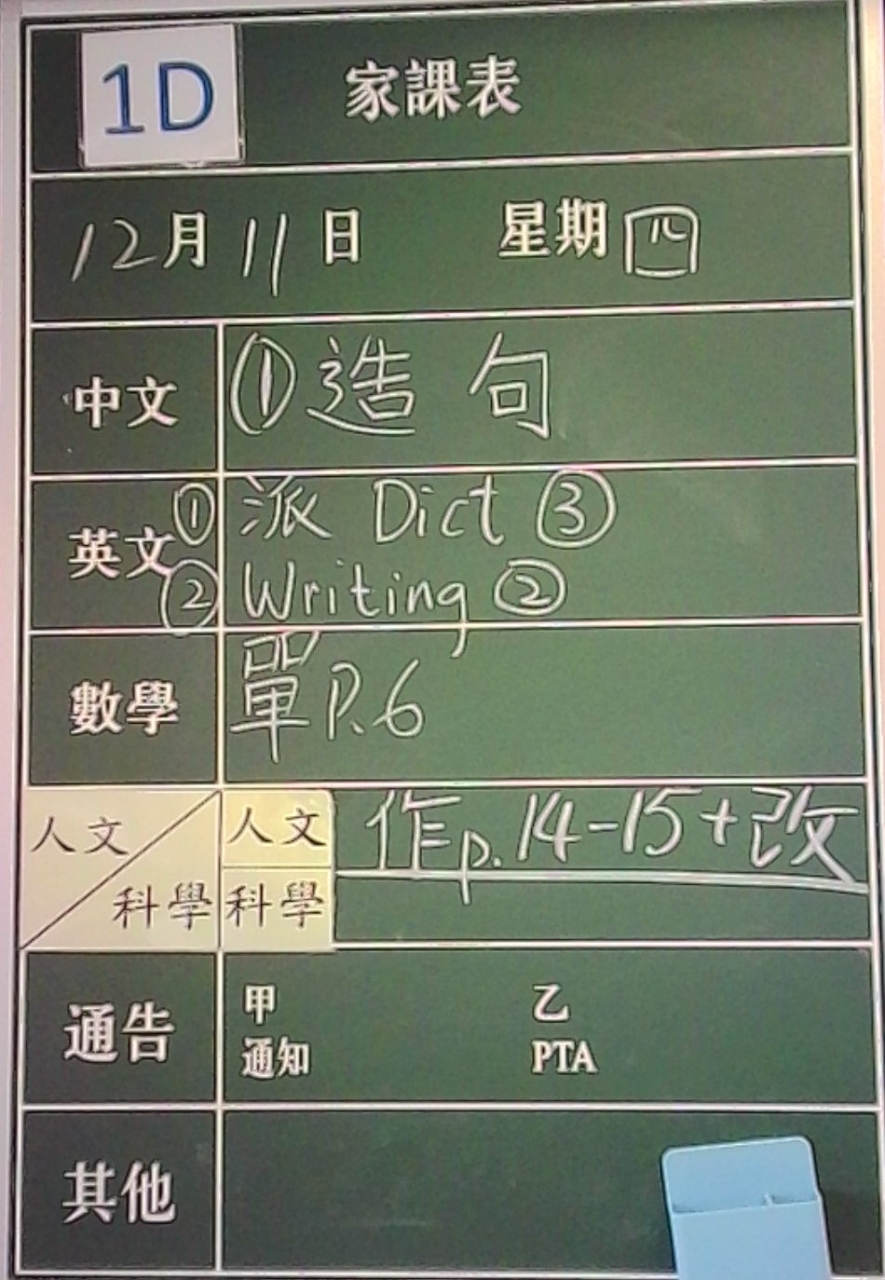 1D 家課表
12月11日 星期四
中文 ①造句
英文 ①派 Dict ③
②Writing ②
數學 單P.6
人文 人文 作p.14-15+改
科學 科學
通告 甲 乙
通知 PTA
其他